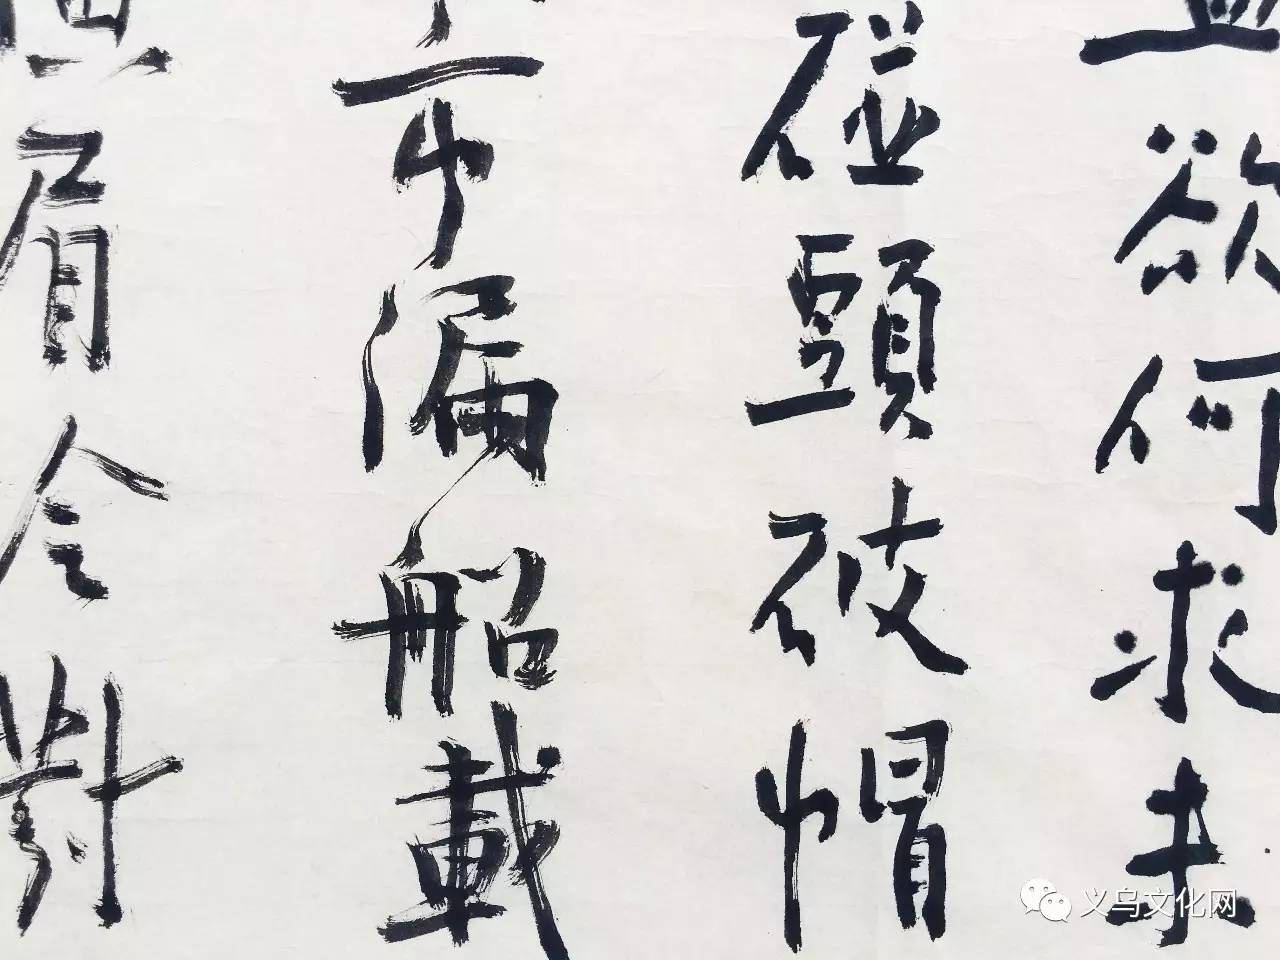 欲何求未
碰頭破帽
市漏船載
眉冷對
义乌文化网